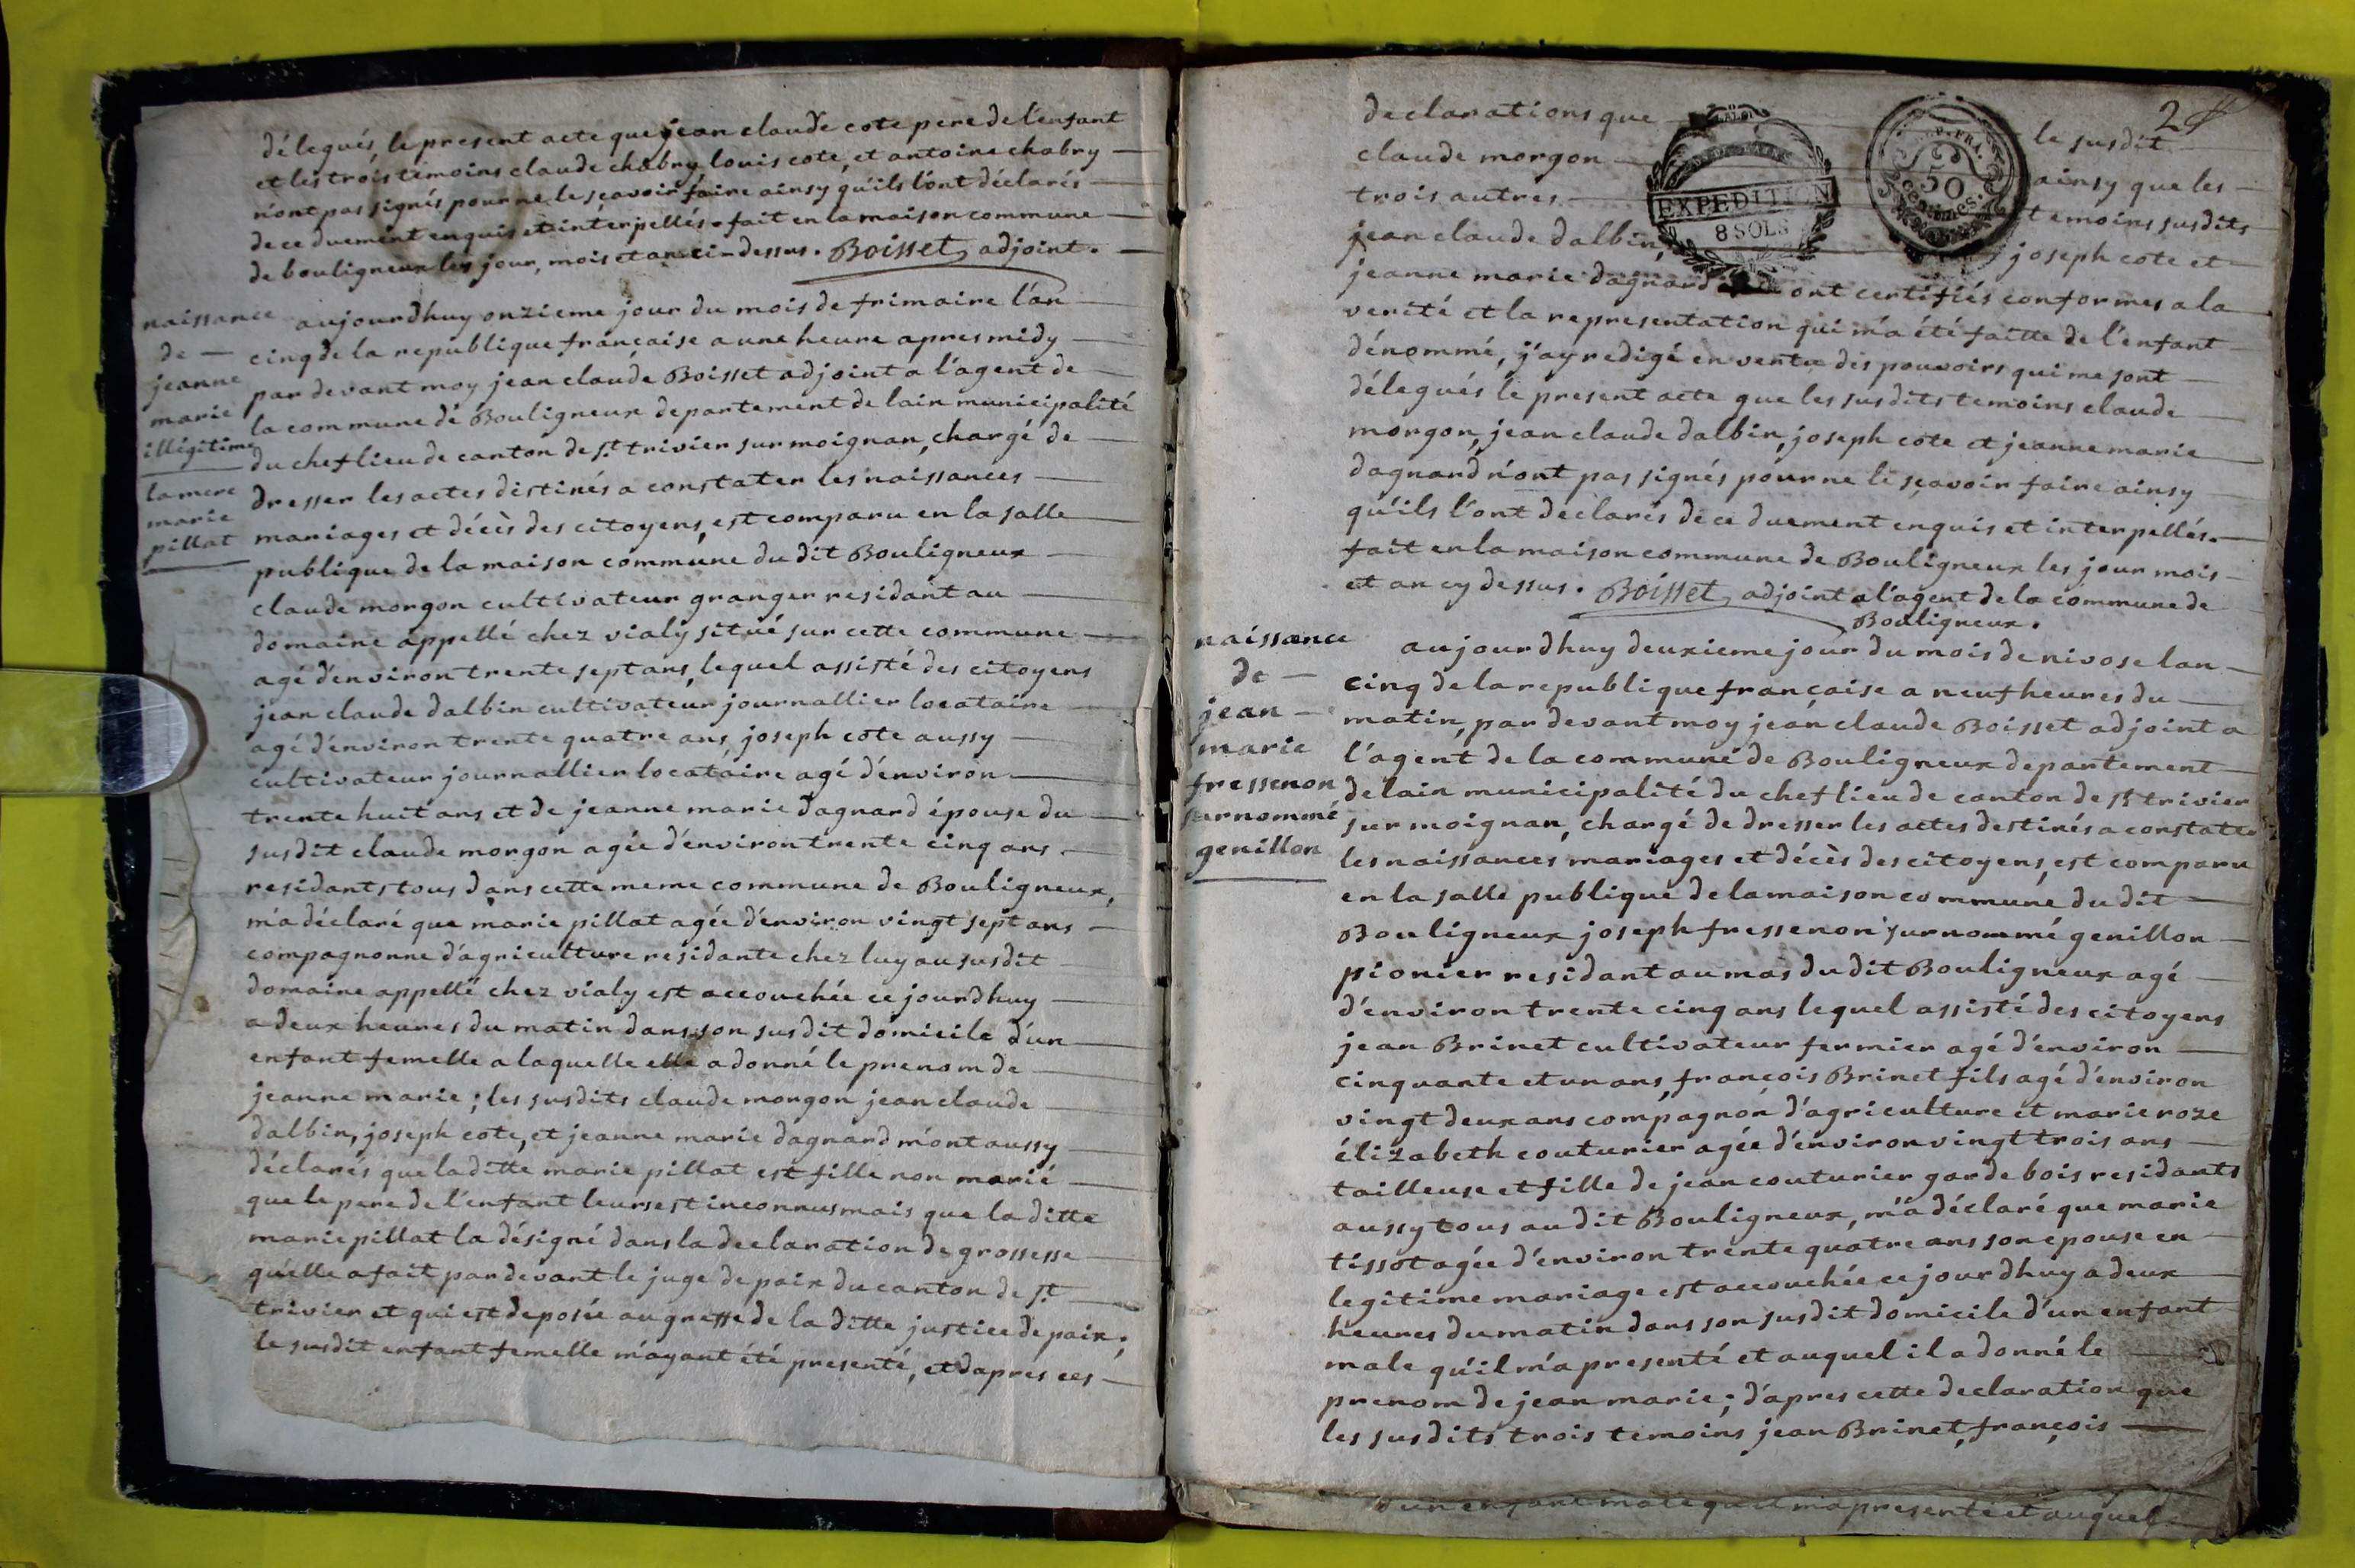 délegués, le present acte que jean claude cote pere de l'enfant
et les trois temoins claude chabry, louis cote, et antoine chabry
n'ont pas signés pour ne le sçavoir faire ainsy qu'ils l'ont déclarés
de ce duement enquis et interpellés. fait en la maison commune
de bouligneux les jour, mois et an ci-dessus. Boisset, adjoint.
naissance
de
jeanne
marie
illégitime
la mere
marie
pillat
aujourdhuy onzieme jour du mois de frimaire l'an
cinq de la republique française a une heure apres midy
par devant moy jean claude Boisset adjoint a l'agent de
la commune de Bouligneux departement de lain municipalité
du chef lieu de canton de st trivier sur moignan, chargé de
dresser les actes distinés a constater les naissances
mariages et décès des citoyens, est comparu en la salle
publique de la maison commune du dit Bouligneux
claude morgon cultivateur granger residant au
domaine appellé chez vialy situé sur cette commune
agé d'environ trente sept ans, lequel assisté des citoyens
jean claude dalbin cultivateur journallier locataire
agé d'environ trente quatre ans, joseph cote aussy
cultivateur journallier locataire agé d'environ
trente huit ans et de jeanne marie dagnard épouse du
susdit claude morgon agée d'environ trente cinq ans.
residants tous dans cette meme commune de Bouligneux,
m'a déclaré que marie pillat agée d'environ vingt sept ans
compagnonne d'agriculture residante chez luy au susdit
domaine appellé chez vialy est accouchée ce jourdhuy
a deux heures du matin dans son susdit domicile d'un
enfant femelle a laquelle elle a donné le prenom de
jeanne marie; les susdits claude morgon jean claude
dalbin, joseph cote, et jeanne marie dagnard m'ont aussy
déclarés que la ditte marie pillat est fille non marié
que le pere de l'enfant leurs est inconnus mais que la ditte
marie pillat la désigné dans la declaration de grossesse
qu'elle a fait par devant le juge de paix du canton de st
trivier et qui est deposée au greffe de la ditte justice de paix;
le susdit enfant femelle m'ayant été presenté, et d'apres ces
2
declarations que le susdit
claude morgon ainsy que les
trois autres temoins susdits
jean claude dalbin, joseph cote et
EXPEDITION
8 SOLS
50
centimes
jeanne marie dagnard ont certifiés conformes a la
verité et la representation qui m'a été faitte de l'enfant
dénommé, j'ay redigé en vertu des pouvoirs qui me sont
délegués le present acte que les susdits temoins claude
morgon, jean claude dalbin, joseph cote et jeanne marie
dagnard n'ont pas signés pour ne le sçavoir faire ainsy
qu'ils l'ont déclarés de ce duement enquis et interpellés.
fait en la maison commune de Bouligneux les jour mois
et an cy dessus. Boisset, adjoint a l'agent de la commune de
Bouligneux.
naissance
de
jean
marie
fressenon
surnommé
genillon
aujourdhuy deuxieme jour du mois de nivose lan
cinq de la republique française a neuf heures du
matin, par devant moy jean claude Boisset adjoint a
l'agent de la commune de Bouligneux departement
de lain municipalité du chef lieu de canton de st trivier
sur moignan, chargé de dresser les actes destinés a constater
les naissances mariages et décès des citoyens, est comparu
en la salle publique de la maison commune du dit
Bouligneux joseph fressenon surnommé genillon
pionier residant au mas du dit Bouligneux agé
d'environ trente cinq ans lequel assisté des citoyens
jean Brinet cultivateur fermier agé d'environ
cinquante et un ans, françois Brinet fils agé d'environ
vingt deux ans compagnon d'agriculture et marie roze
élizabeth couturier agée d'environ vingt trois ans
tailleuse et fille de jean couturier garde bois residants
aussy tous au dit Bouligneux, m'a déclaré que marie
tissot agée d'environ trente quatre ans son epouse en
legitime mariage est accouchée ce jourdhuy a deux
heures du matin dans son susdit domicile d'un enfant
male qu'il m'a presenté et auquel il a donné le
prenom de jean marie; d'apres cette declaration que
les susdits trois temoins jean Brinet, françois
d'un enfant male qu'il m'a presenté et auquel